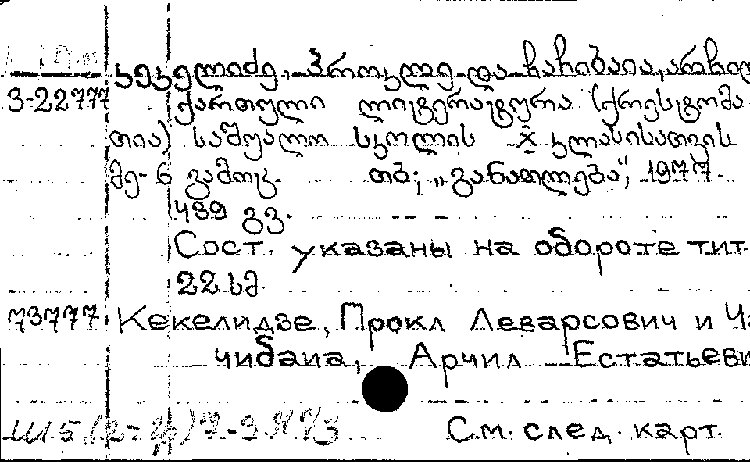 კეკელიძე, პროკლე და ჩაჩიბაია, არჩილ
3-22777 ქართული ლიტერატურა (ქრესტომა-
თია) საშუალო სკოლის X კლასისათვის
მე-6 გამოც. თბ; „განათლება“, 1977.
439 გვ.
Сост. указаны на обороте тит.
22 სმ.
73777 Кекелидзе, Прокл Леварсович и Ча
чибаиа, Арчил Естатьеви
См. след. карт.